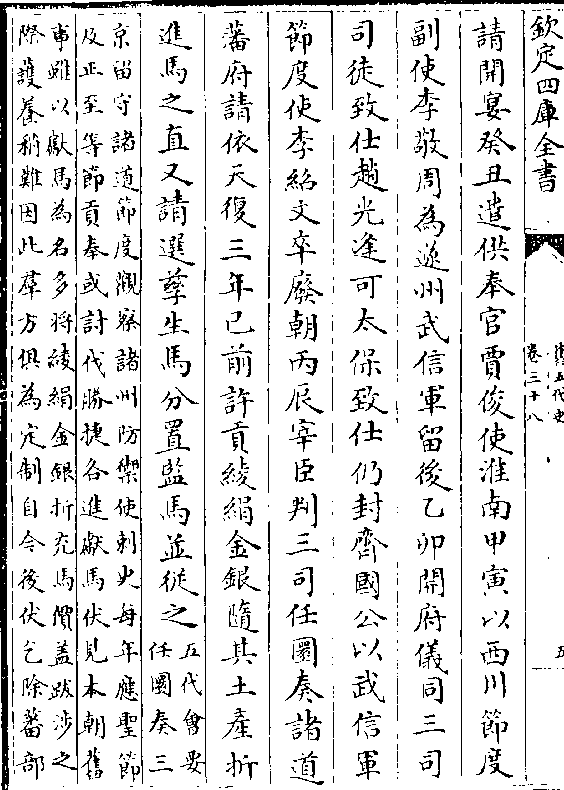 欽定四庫全書
舊五代史
卷三十八
五
請開宴癸丑遣供奉官賈俊使淮南甲寅以西川節度
副使李敬周為遂州武信軍留後乙卯開府儀同三司
司徒致仕趙光逢可太保致仕仍封齊國公以武信軍
節度使李紹文卒廢朝丙辰宰臣判三司任圜奏諸道
藩府請依天復三年已前許貢綾絹金銀隨其土產折
進馬之直又請選孳生馬分置監馬並從之
五代會要
任圜奏三
京留守諸道節度觀察諸州防禦使刺史每年應聖節
及正至等節貢奉或討伐勝捷各進獻馬伏見本朝舊
事雖以獻馬為名多將綾絹金銀折充馬價蓋跋涉之
際護養稍難因此群方俱為定制自今後伏乞除蕃部